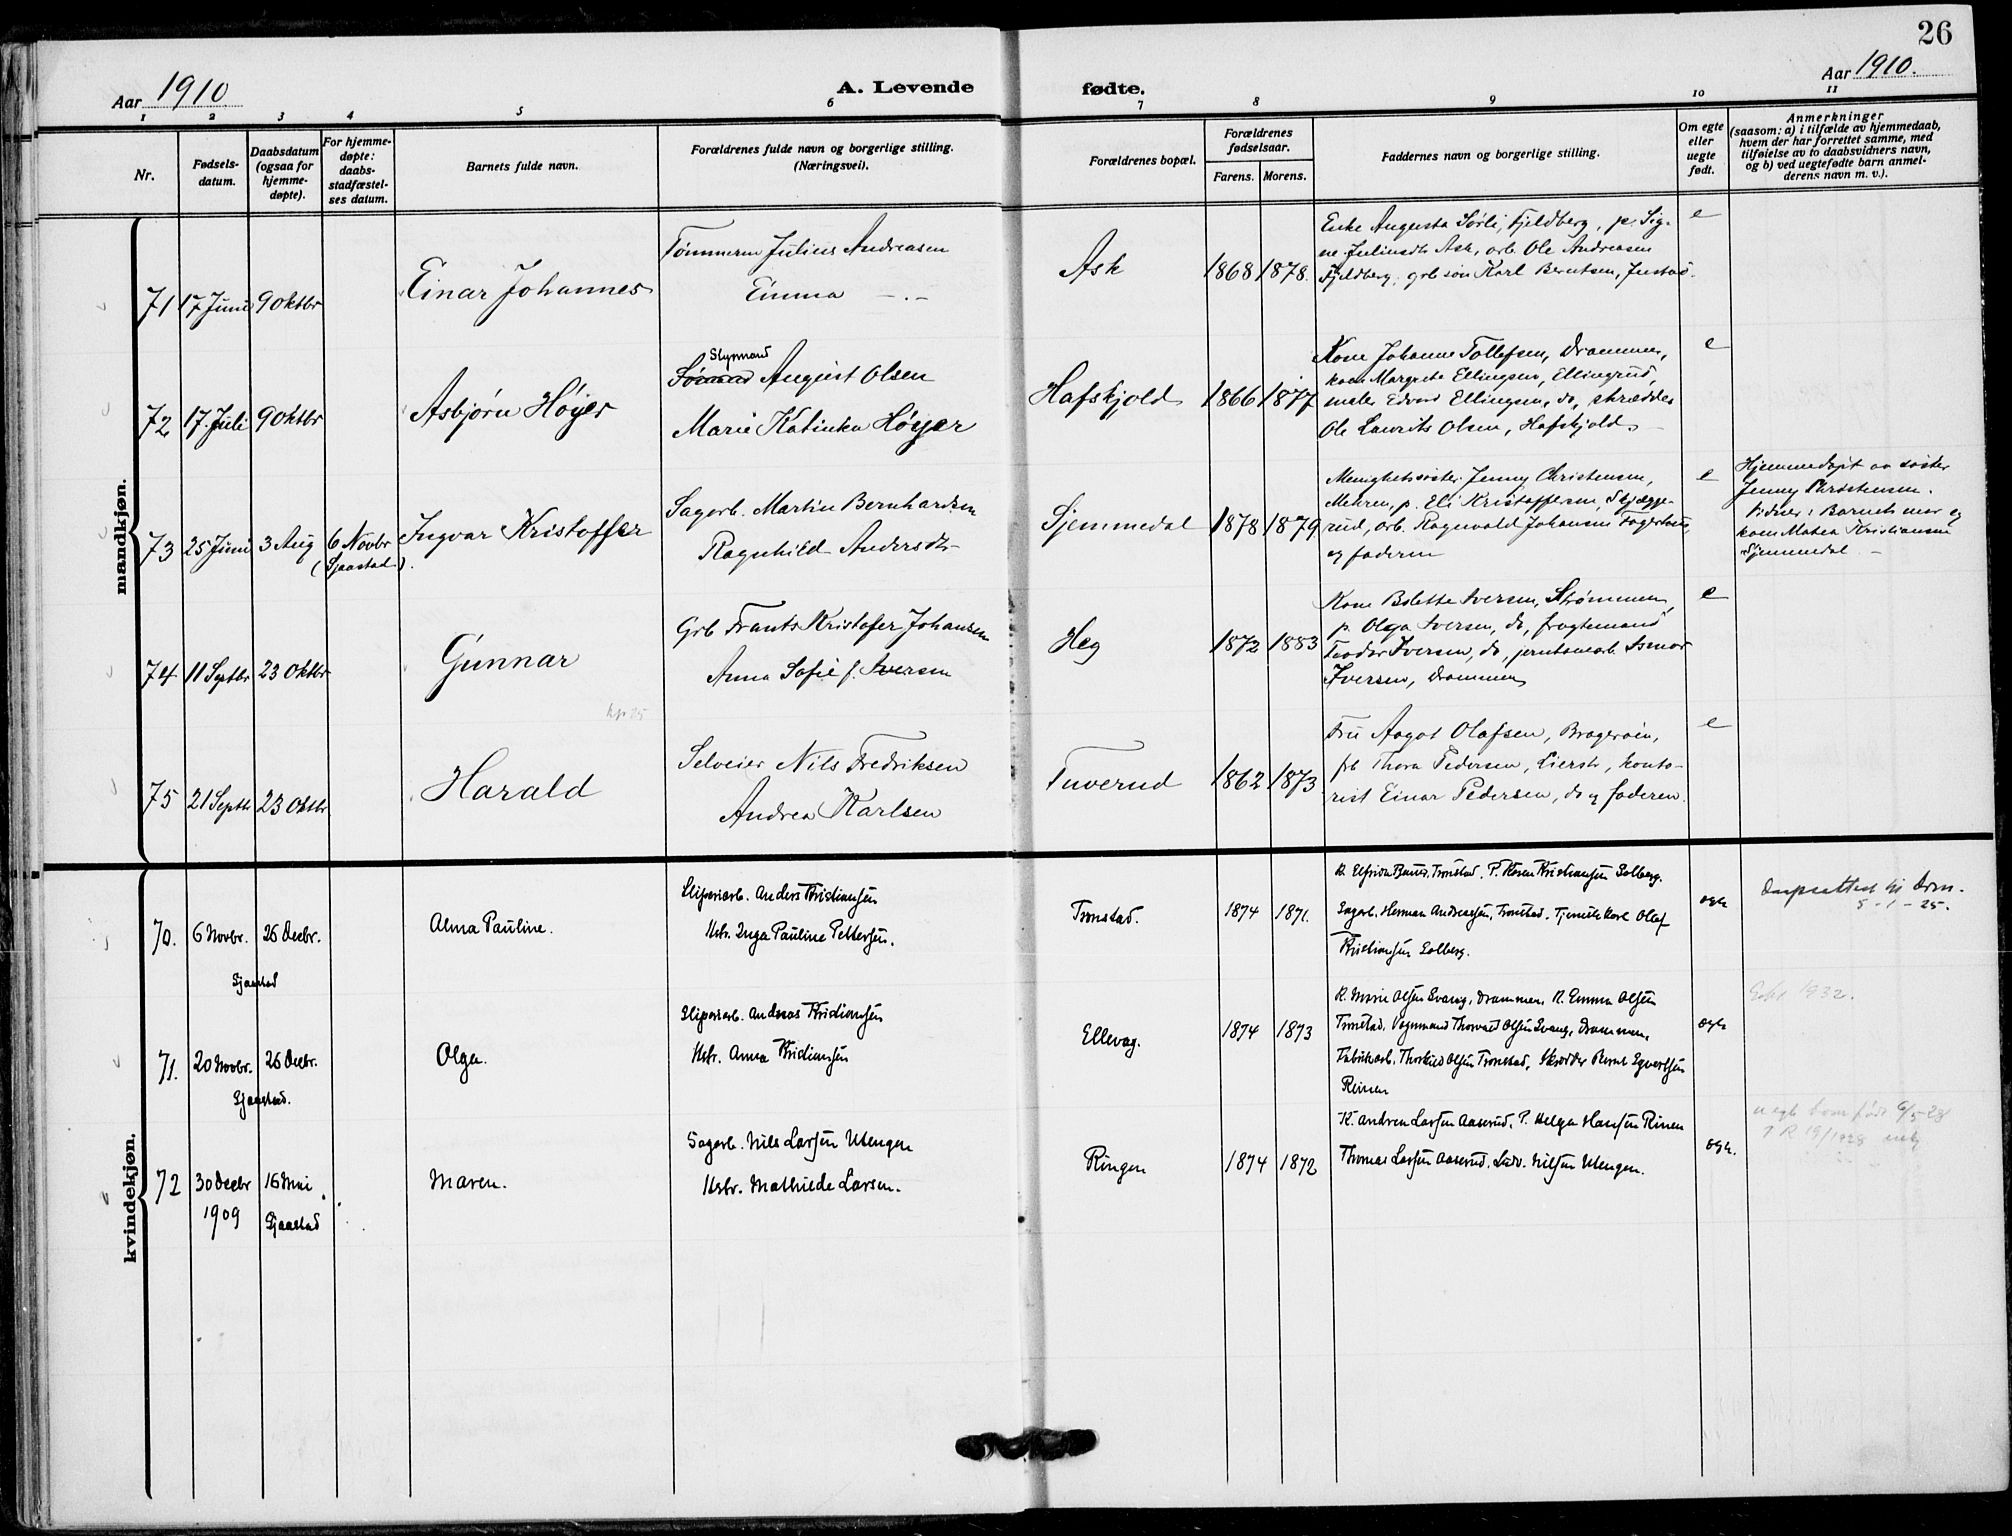 26
Aar 1910
A. Levende
fødte.
Aar 1910.
1 2 3 4 5 6 7 8 9 10 11
Nr.
Fødsels-
datum.
Daabsdatum
(ogsaa for
hjemme-
døpte).
For hjemme-
døpte:
daabs-
stadfæstel-
ses datum.
Barnets fulde navn.
Forældrenes fulde navn og borgerlige stilling.
(Næringsvei).
Forældrenes bopæl.
Forældrenes
fødselsaar.
Farens. Morens.
Faddernes navn og borgerlige stilling.
Om egte
eller
uegte
født.
Anmerkninger
(saasom: a) i tilfælde av hjemmedaab,
hvem der har forrettet samme, med
tilføielse av to daabsvidners navn,
og b) ved uegtefødte barn anmel-
derens navn m. v.).
mandkjøn.
71 17 Juni 9 oktbr
Einar Johannes
Tømmerm Julius Andreasen
Emma —.—
Ask
1868 1878.
Enke Augusta Sørli, Fjeldberg, p. Sig-
ne Juliusdt Ask, arb. Ole Andreasen
Fjeldberg, grb søn Karl Berntsen, Justad.
e
72 17. Juli 9 oktbr
Asbjørn Höyer
Styrmand
August Olsen
Marie Katinka Höyer
Hafskjold
1866 1877
Kone Johanne Tollefsen, Drammen,
kone Margrete Ellingsen, Ellingrud,
maler Edvard Ellingsen, do, skrædder
Ole Laurits Olsen, Hafskjold
e
73 25 Juni 3 Aug 6 Novbr
(Sjaastad).
Ingvar Kristoffer
Sagarb. Martin Bernhardsen
Ragnhild Andersdt
Sjemmedal
1878 1879.
Menighetssøster Jenny Christensen,
Mehren, p. Eli Kristoffersen, Skjægge-
rud, arb. Ragnvald Johansen
og faderen
e
Hjemmedøpt av søster
Jenny Christensen.
Vidner: Barnets mor og
kone Matea Kristiansen
Sjemmedal
74 11 Septbr 23 oktbr
Gunnar
Grb Frants Kristofer Johansen
Anna Sofie f. Iversen
Heg
1872 1883
Kone Bolette Iversen, Strømmen,
p. Olga Iversen, do, fragtemand
Teodor Iversen, do, Ismar
Iversen, Drammen
e
75 21 Septbr 23 oktbr
Harald
Selveier Nils Fredriksen
Andrea Karlsen
Tuverud
1862 1873
Fru Aagot Olafsen, Bragerøen,
frk Thora Pedersen, Lierstr, konto-
rist Einar Pedersen, do og faderen.
e
kvindekjøn.
70. 6 Novbr. 26 Decbr.
Sjaastad
Alma Pauline.
Sliperiarb. Anders Kristiansen
Hstr. Inga Pauline Pettersen.
Tronstad.
1874 1871.
K. Elfrida Tronstad. P. Karen Kristiansen Solberg.
Sagarb. Herman Andreassen, Tronstad. Tjenestekarl Olaf
Kristiansen Solberg.
egte
Daapsattest til Drm.
5-1-25.
71. 20 Novbr. 26 Decbr.
Sjaastad.
Olga.
Sliperiarb. Andreas Kristiansen
Hstr. Anna Kristiansen
Ellevag.
1874 1873
K. Marie Olsen Evang, Drammen, K. Emma Olsen
Tronstad, Vognmand Thorvald Olsen Evang, Drammen,
Fabrikarb. Thorkild Olsen Tronstad, Skrædder Bernt Egvertsen
Reinen
egte
1932.
72 30 Decbr 16 Mai
1909 Sjaastad
Maren.
Sagarb. Nils Larsen Utengen
Hstr. Mathilde Larsen.
Ringen
1874 1872
K. Andrea Larsen Aaserud. P. Helga Hansen Rinen
Thomas Larsen Aaserud. Ludv. Nilsen Utengen.
egte.
uegte barn født 6/5-28